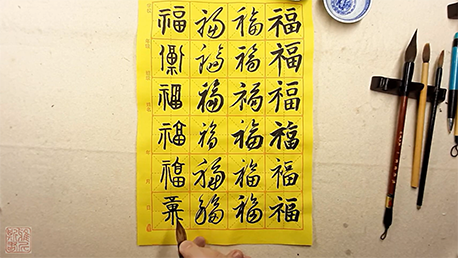 福福福福
福福福
福福福福
福福福福
福福福福
福福福